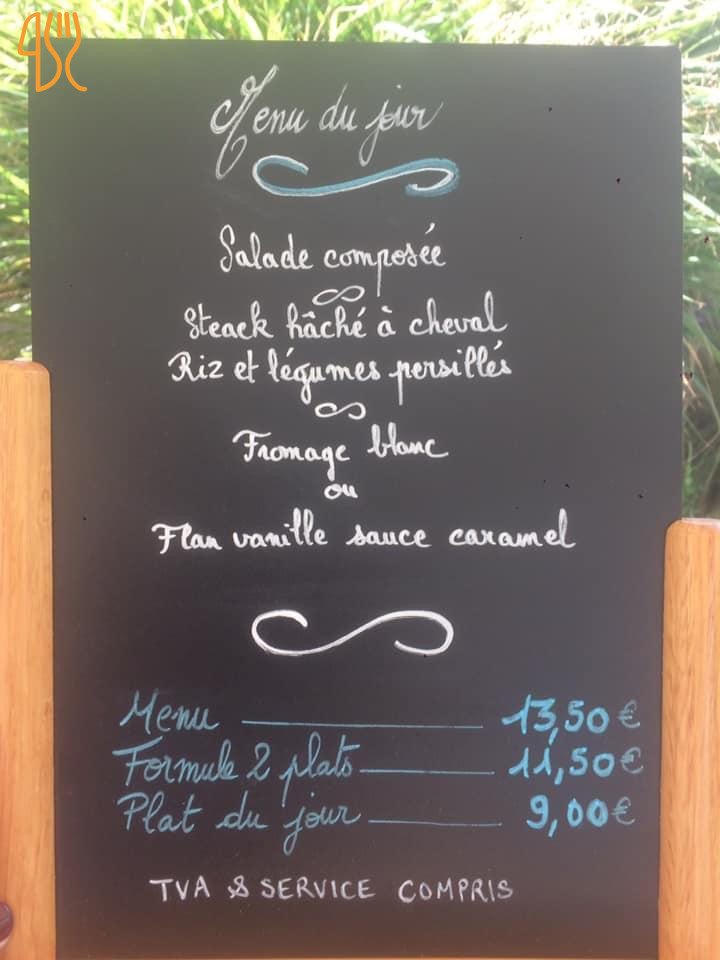 Menu du jour
Salade composée
Steack hâché à cheval
Riz et légumes persillés
Fromage blanc
ou
Flan vanille sauce caramel
Menu 13,50 €
Formule 2 plats 11,50 €
Plat du jour 9,00 €
TVA & SERVICE COMPRIS